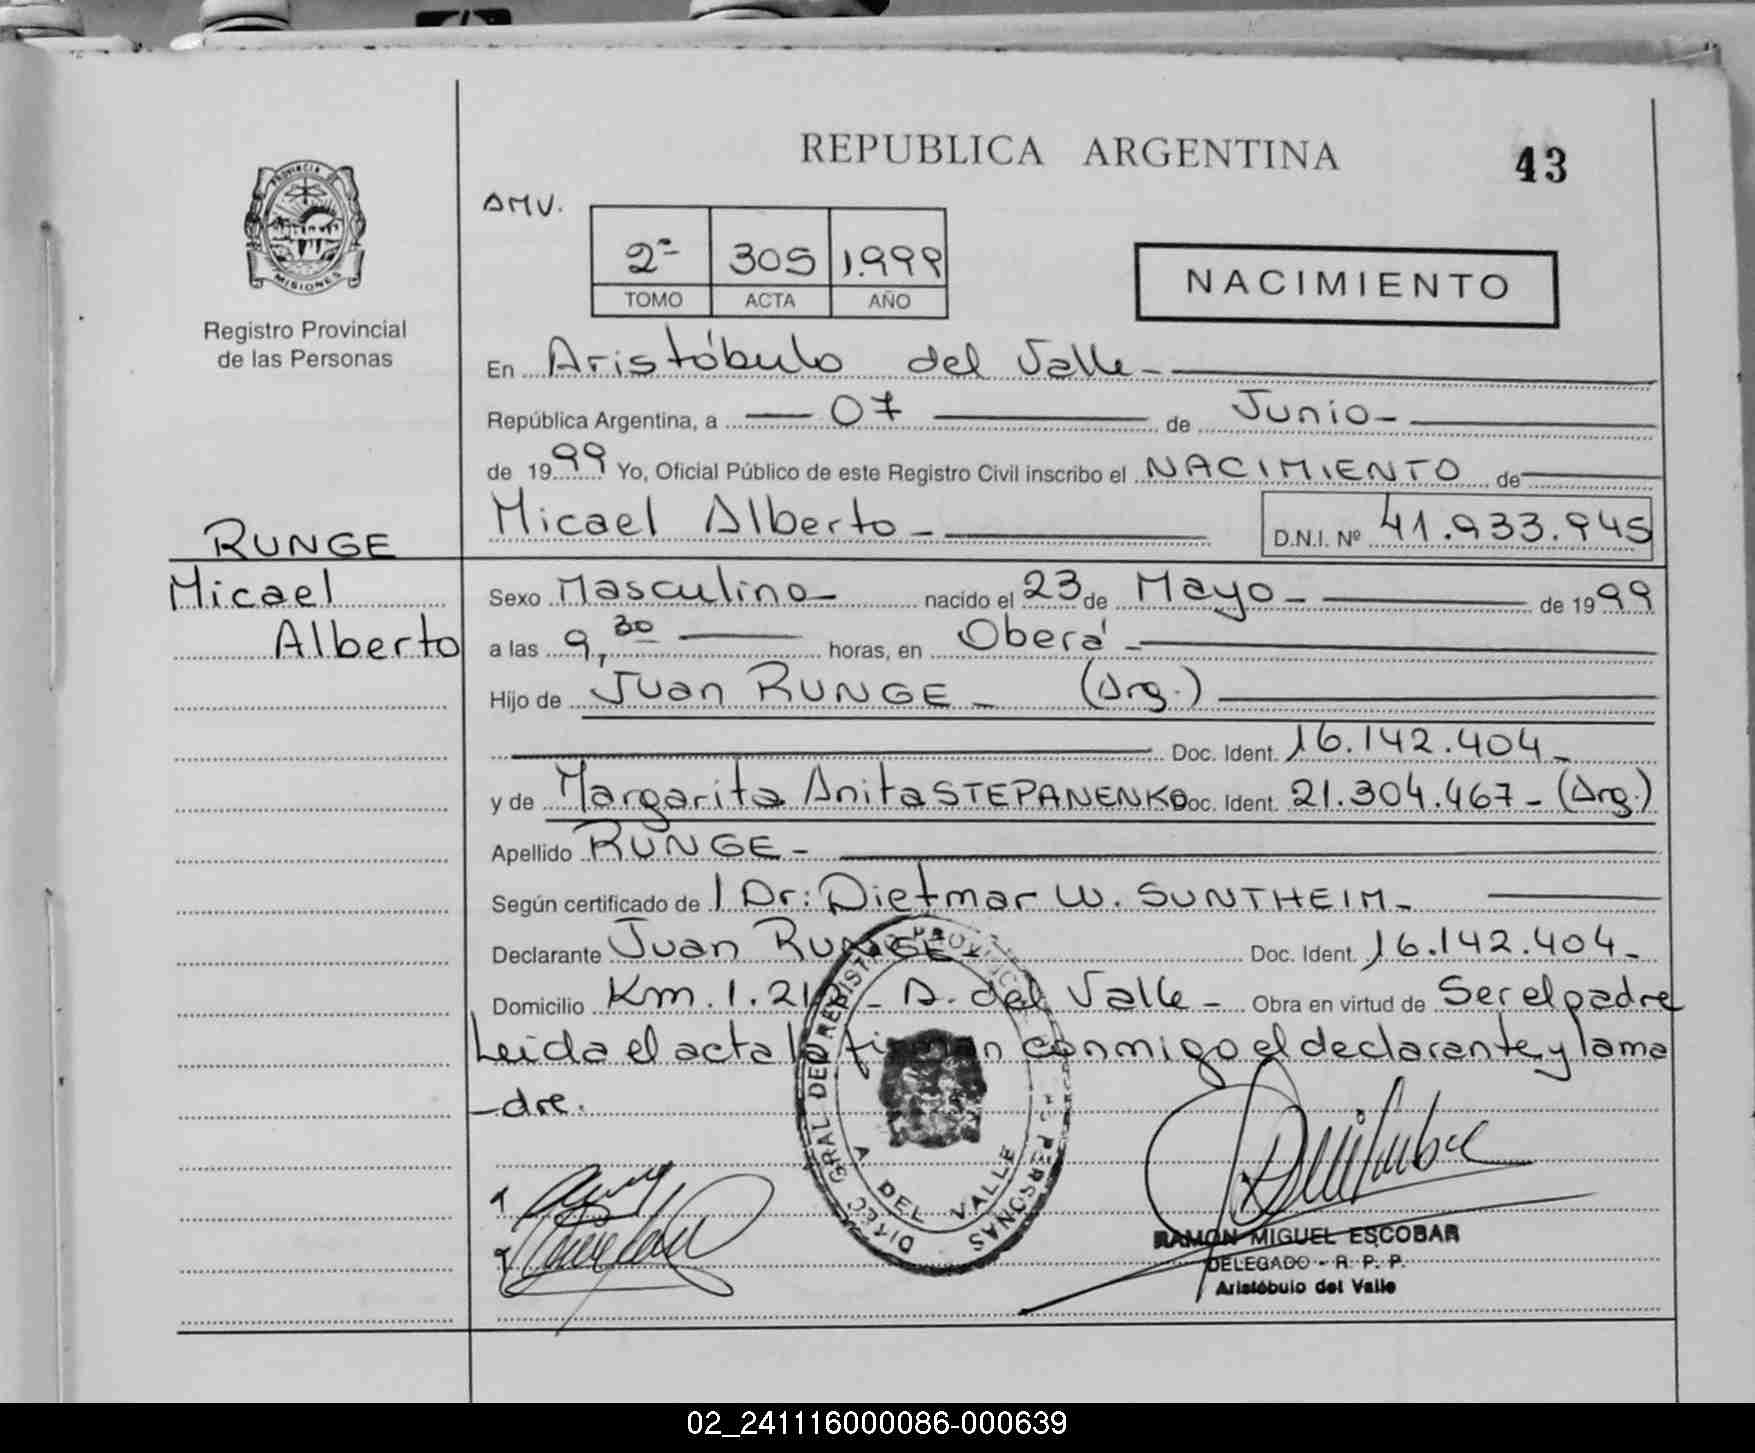 REPUBLICA ARGENTINA
43
AMV.
2ª 305 1.999
TOMO ACTA AÑO
NACIMIENTO
PROVINCIA DE
MISIONES
Registro Provincial
de las Personas
En Aristóbulo del Valle-
República Argentina, a 07 de Junio-
de 1999 Yo, Oficial Público de este Registro Civil inscribo el NACIMIENTO de
Micael Alberto - D.N.I. Nº 41.933.945
RUNGE
Micael
Alberto
Sexo Masculino- nacido el 23 de Mayo- de 1999
a las 9,30 horas, en Oberá-
Hijo de Juan RUNGE- (Arg.)
Doc. Ident. 16.142.404-
y de Margarita Anita STEPANENKO Doc. Ident. 21.304.467- (Arg.)
Apellido RUNGE-
Según certificado de / Dr: Dietmar W. SUNTHEIM-
Declarante Juan RUNGE- Doc. Ident. 16.142.404-
Domicilio Km. 1.21 - A. del Valle- Obra en virtud de Ser el padre
Leida el acta la firman conmigo el declarante y la ma
-dre.
DIREC. GRAL DEL REGISTRO PROVINCIAL DE LAS PERSONAS
A DEL VALLE
RAMON MIGUEL ESCOBAR
DELEGADO - R. P. P.
Aristóbulo del Valle
02_241116000086-000639